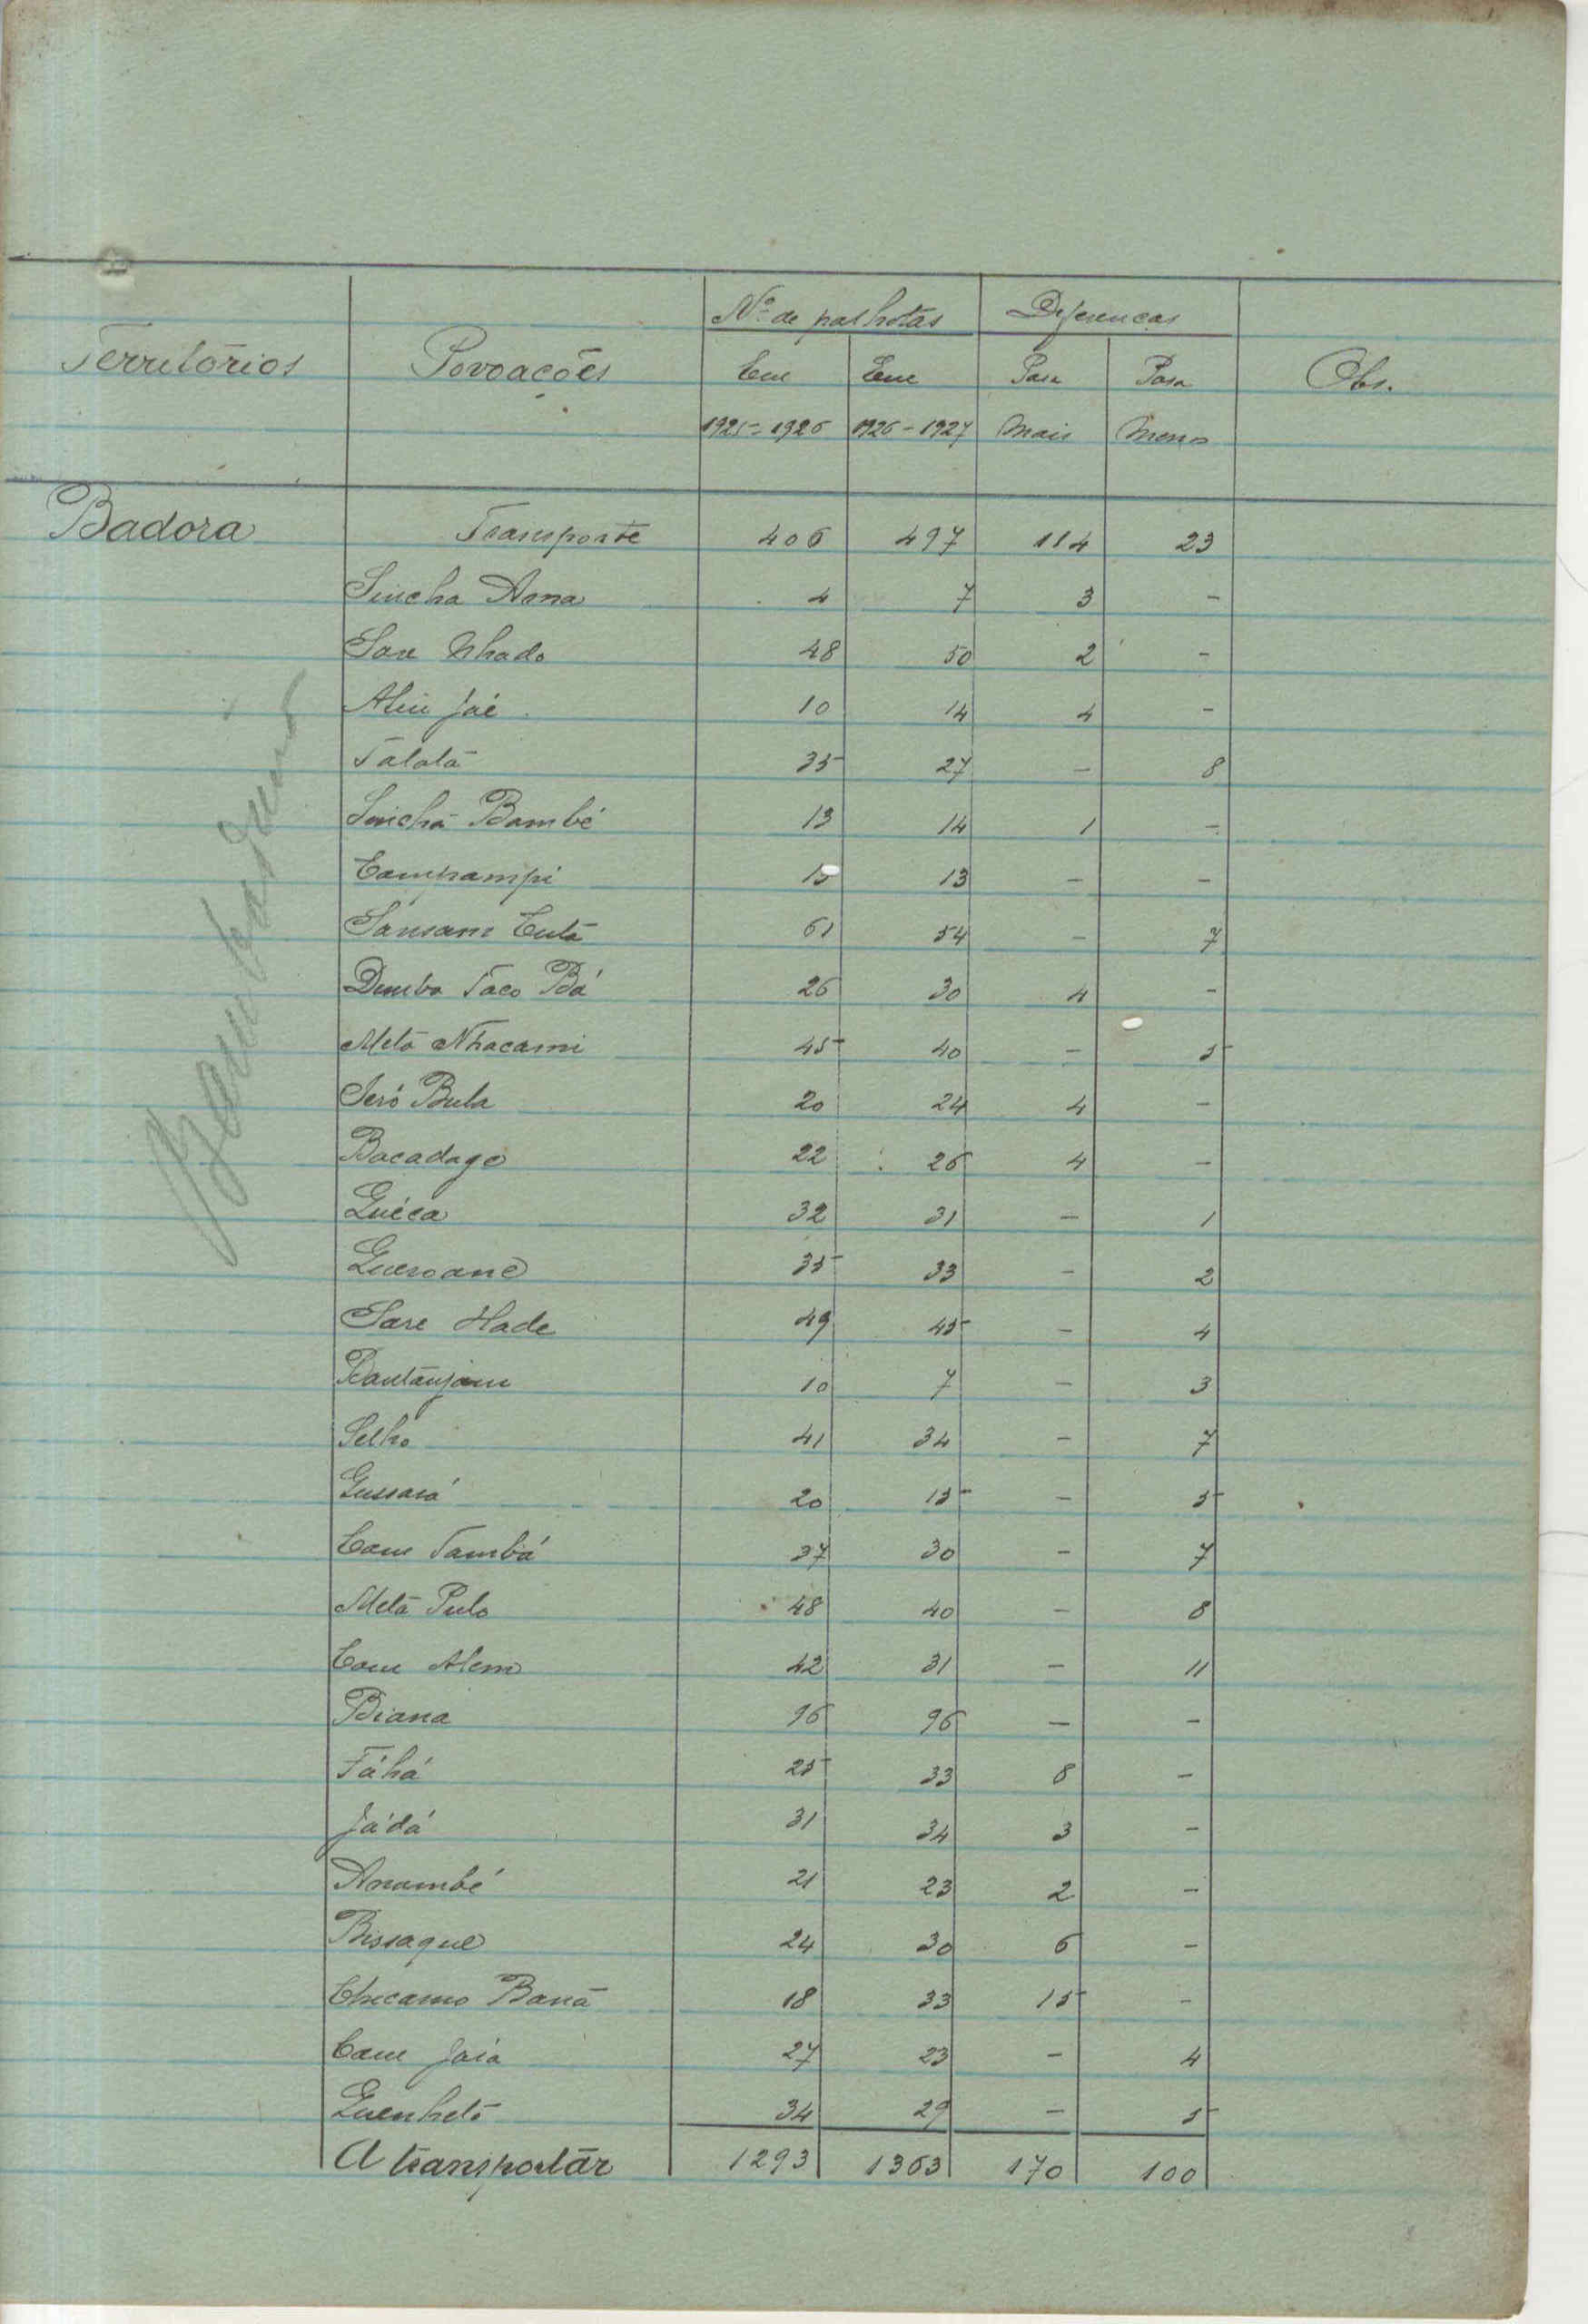 Nº de palhotas Diferenças
Territórios Povoações Em Em Para Para Obs.
1925-1926 1926-1927 Mais Menos
Badora Transporte 406 497 114 23
Sincha Arma 4 7 3 -
Sare Nhado 48 50 2 -
Aliu Jaé 10 14 4 -
Talatá 35 27 - 8
Sinchã Bambé 13 14 1 -
Campampi 13 - -
Sansam Cutá 61 54 - 7
Demba Taco Bá 26 30 4 -
Metá Nhacami 45 40 - 5
Seró Bula 20 24 4 -
Bacadage 22 26 4 -
Guéca 32 31 - 1
Gueroane 35 33 - 2
Sare Hade 49 45 - 4
Bantanjam 10 7 - 3
Selho 41 34 - 7
Gussará 20 15 - 5
Cam Tambá 37 30 - 7
Metá Pulo 48 40 - 8
Cam Alem 42 31 - 11
Biana 96 96 - -
Fáhá 25 33 8 -
Jádá 31 34 3 -
Anambé 21 23 2 -
Bissaque 24 30 6 -
Checamo Baná 18 33 15 -
Cam Jaia 27 23 - 4
Guenhetó 34 29 - 5
A transportar 1293 1363 170 100